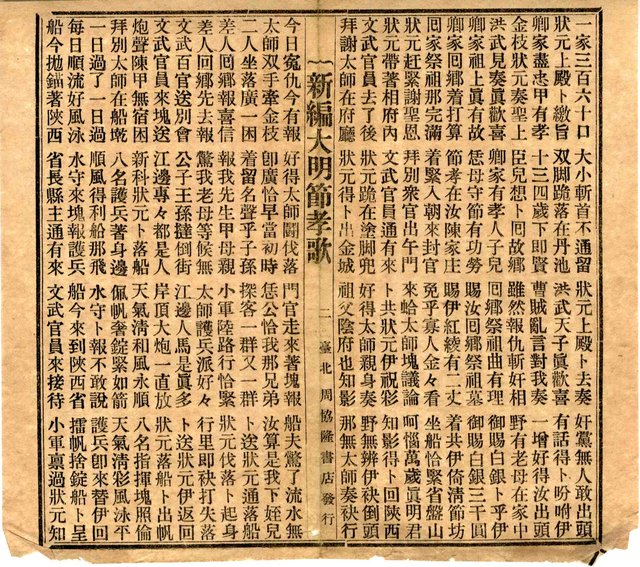 一家三百六十口 大小斬首不通留 狀元上殿卜去奏 奸黨無人敢出頭
狀元上殿卜繳旨 双脚跪落在丹池 洪武天子眞歡喜 有話得卜吩咐伊
卿家盡忠甲有孝 十三四歲下即賢 曹賊亂言對我奏 一增好得汝出頭
金枝狀元奏聖上 臣兒想卜囘故鄉 雖然報仇斬奸相 野有老母在家中
洪武見奏眞歡喜 卿家有孝人子兒 回鄉祭祖曲有理 御賜白銀卜乎伊
卿家祖上眞有故 恁母守節有功勞 賜汝囘鄉祭祖墓 御賜白銀三千圓
卿家囘鄉着打算 節孝在汝陳家庄 賜伊紅綾有二丈 着共伊倚清節坊
囘家祭祖那完滿 着緊入朝來封官 免乎寡人金々看 坐船恰緊省盤山
狀元赶緊謝聖恩 拜別衆官出午門 來蛤太師塊議論 呵惱萬歲眞明君
狀元帶著相府內 文武官員通有來 卜共狀元伊祝彩 知影得卜回陝西
文武官員去了後 狀元跪在塗脚兜 好得太師親身奏 野無辨伊袂倒頭
拜謝太師在府廳 狀元得卜出金城 祖父陰府也知影 那無太師奏袂行
新編大明節孝歌 二 臺北 周協隆書店發行
今日冤仇今有報 好得太師鬪伐落 門官走來著塊報 船夫驚了流水無
太師双手牽金枝 卽廣恰早當初時 恁公恰我那兄弟 汝算是我下姪兒
二人坐落廣一困 着留名聲乎子孫 探客一群又一群 卜送狀元通落船
差人囘鄉報喜信 報我先生甲母親 小軍陸路行恰緊 狀元伐落卜起身
差人回鄉先去報 驚我老母等候無 太師護兵派好々 行里即袂打失落
文武百官送別會 公子王孫撻倒街 江邊人馬是眞多 卜送狀元伊返回
文武官員來塊送 江邊專々都是人 岸頂大炮一直放 狀元落船卜出帆
炮聲陳甲無宿困 新科狀元卜落船 天氣清和風永順 八名指揮塊照倫
拜別太師在船墘 八名護兵著身邊 佩帆奢錠緊如箭 天氣清彩風泳平
一日過了一日過 順風得利船那飛 水守卜報不敢說 護兵卽來替伊回
每日順流好風泳 水守來塊報護兵 船今來到陝西省 擂帆捨錠船卜呈
船今拋錨著陝西 省長縣主通有來 文武官員來接待 小軍禀過狀元知